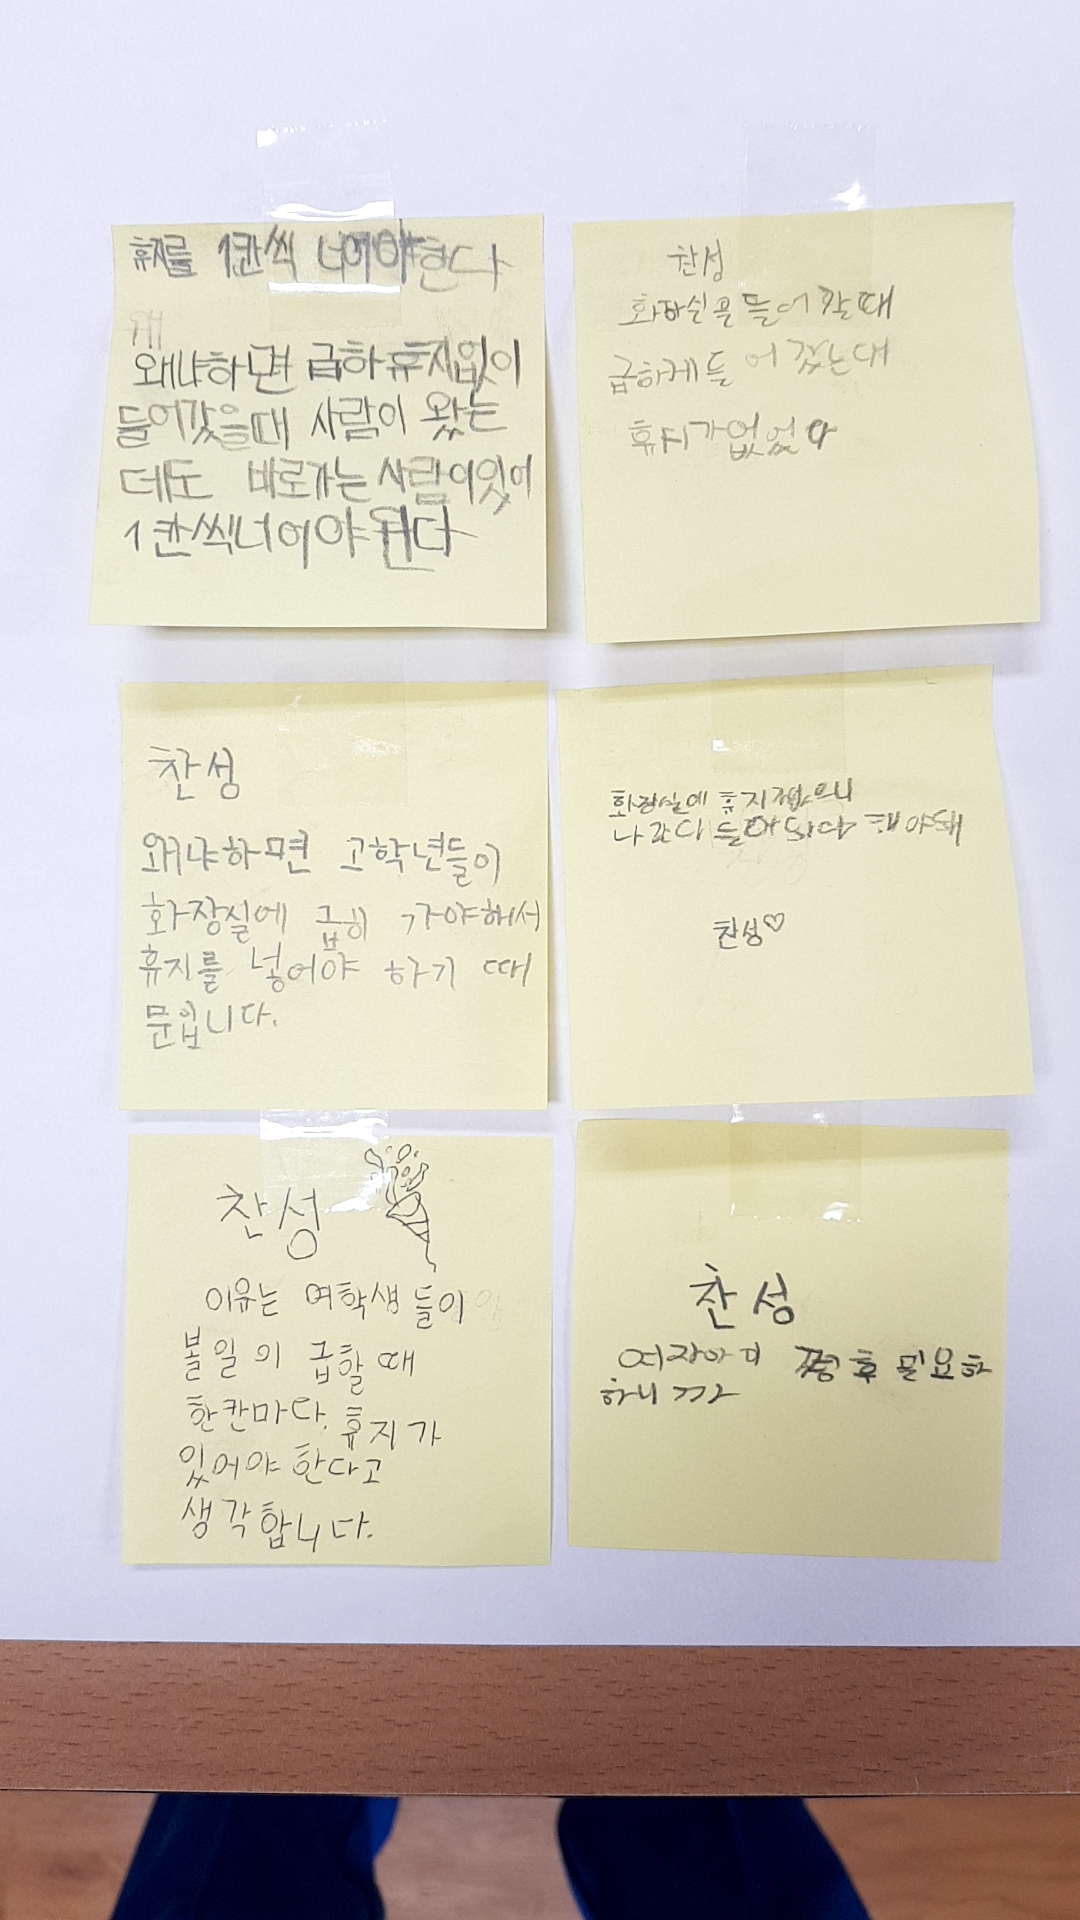 휴지를 1칸씩 너어야한다
왜냐하면 급하 휴지없이
들어갔을때 사람이 왔는
데도 바로가는 사람이있어
1칸씩너어야 된다
찬성
화장실을 들어 갈때
급하게들어 갔는대
휴지가없었다
찬성
왜냐하면 고학년들이
화장실에 급히 가야해서
휴지를 넣어야 하기 때
문입니다.
화장실에 휴지 없으니
나갔다 들어 해야돼
찬성♡
찬성
이유는 여학생들이
볼일이 급할때
한칸마다. 휴지가
있어야 한다고
생각합니다.
찬성
여자아 필요하
하니까